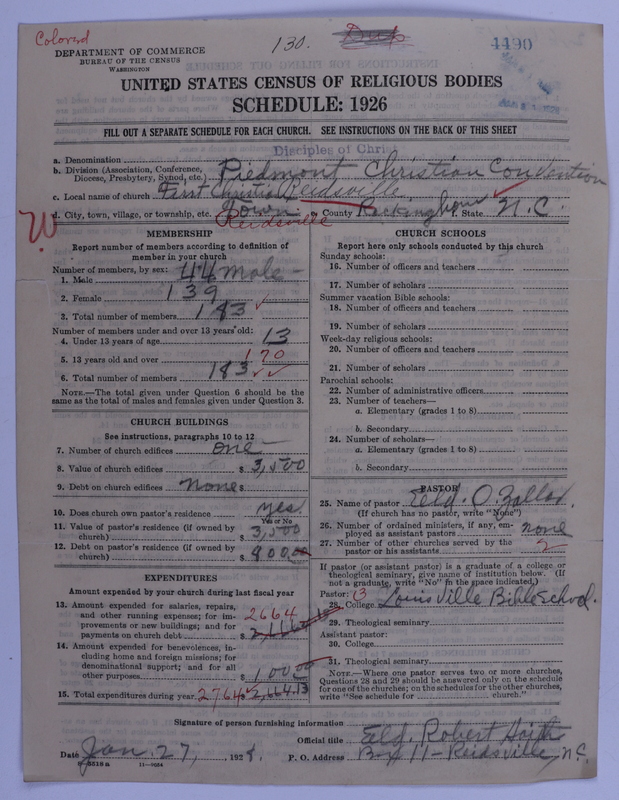 Colored
130.
4490
DEPARTMENT OF COMMERCE
BUREAU OF THE CENSUS
WASHINGTON
UNITED STATES CENSUS OF RELIGIOUS BODIES
SCHEDULE: 1926
FILL OUT A SEPARATE SCHEDULE FOR EACH CHURCH. SEE INSTRUCTIONS ON THE BACK OF THIS SHEET
Disciples of Christ
a. Denomination
b. Division (Association, Conference, Diocese, Presbytery, Synod, etc.) Piedmont Christian Convention
c. Local name of church First Christian Reidsville
d. City, town, village, or township, etc. town County Rockingham State N.C.
W. Reidsville
MEMBERSHIP
Report number of members according to definition of
member in your church
Number of members, by sex:
1. Male 44 male
2. Female 139
3. Total number of members 183
Number of members under and over 13 years old:
4. Under 13 years of age 13
5. 13 years old and over 170
6. Total number of members 183
NOTE.—The total given under Question 6 should be
same as the total of males and females given under Question 3.
CHURCH BUILDINGS
See instructions, paragraphs 10 to 12
7. Number of church edifices one
8. Value of church edifices $ 3,500
9. Debt on church edifices none $
10. Does church own pastor's residence yes
Yes or No
11. Value of pastor's residence (if owned by
church) $ 3,500
12. Debt on pastor's residence (if owned by
church) $ 900.00
EXPENDITURES
Amount expended by your church during last fiscal year
13. Amount expended for salaries, repairs,
and other running expenses; for im-
provements or new buildings; and for
payments on church debt $ 2664
14. Amount expended for benevolences, in-
cluding home and foreign missions; for
denominational support; and for all
other purposes $ 100.00
15. Total expenditures during year 2764 $ 2,664.13
CHURCH SCHOOLS
Report here only schools conducted by this church
Sunday schools:
16. Number of officers and teachers
17. Number of scholars
Summer vacation Bible schools:
18. Number of officers and teachers
19. Number of scholars
Week-day religious schools:
20. Number of officers and teachers
21. Number of scholars
Parochial schools:
22. Number of administrative officers
23. Number of teachers—
a. Elementary (grades 1 to 8)
b. Secondary
24. Number of scholars—
a. Elementary (grades 1 to 8)
b. Secondary
PASTOR
25. Name of pastor Eld. O. Zollar
(If church has no pastor, write "None")
26. Number of ordained ministers, if any, em-
ployed as assistant pastors none
27. Number of other churches served by the
pastor or his assistants 2
If pastor (or assistant pastor) is a graduate of a college or
theological seminary, give name of institution below. (If
not a graduate, write "No" in the space indicated.)
Pastor:
28. College Louisville Bible School.
29. Theological seminary
Assistant pastor:
30. College
31. Theological seminary
NOTE.—Where one pastor serves two or more churches,
Questions 28 and 29 should be answered only on the schedule
for one of the churches; on the schedules for the other churches,
write "See schedule for church."
Signature of person furnishing information
Official title Eld. Robert
Date Jan. 27, 1928. P. O. Address Box 11 - Reidsville, N.C.